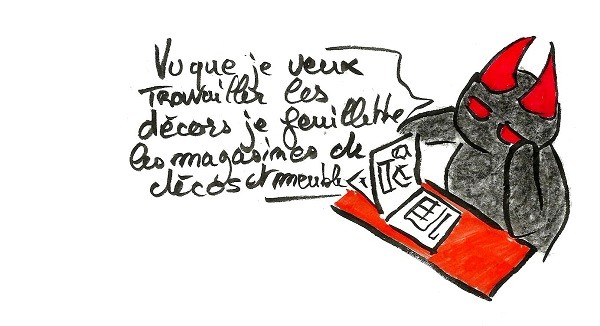 Vu que je veux
travailler les
décors je feuillette
les magasines de
décos et meuble